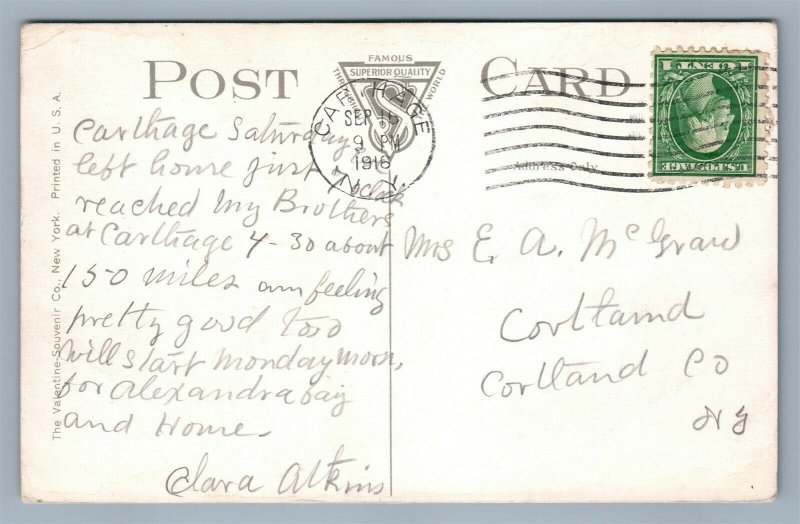 POST CARD
FAMOUS
SUPERIOR QUALITY
THROUGHOUT WORLD
CARTHAGE
SEP 16
9 PM
1916
N.Y.
1 CENT 1
U.S. POSTAGE
Address Only
The Valentine-Souvenir Co., New York. Printed in U. S. A.
Carthage Saturday
left home just 9 oclk
reached my Brothers
at Carthage 4-30 about
150 miles am feeling
pretty good too
will start Monday morn,
for Alexandra bay
and Home.
Clara Atkins
Mrs E. A. McGraw
Cortland
Cortland Co
N Y